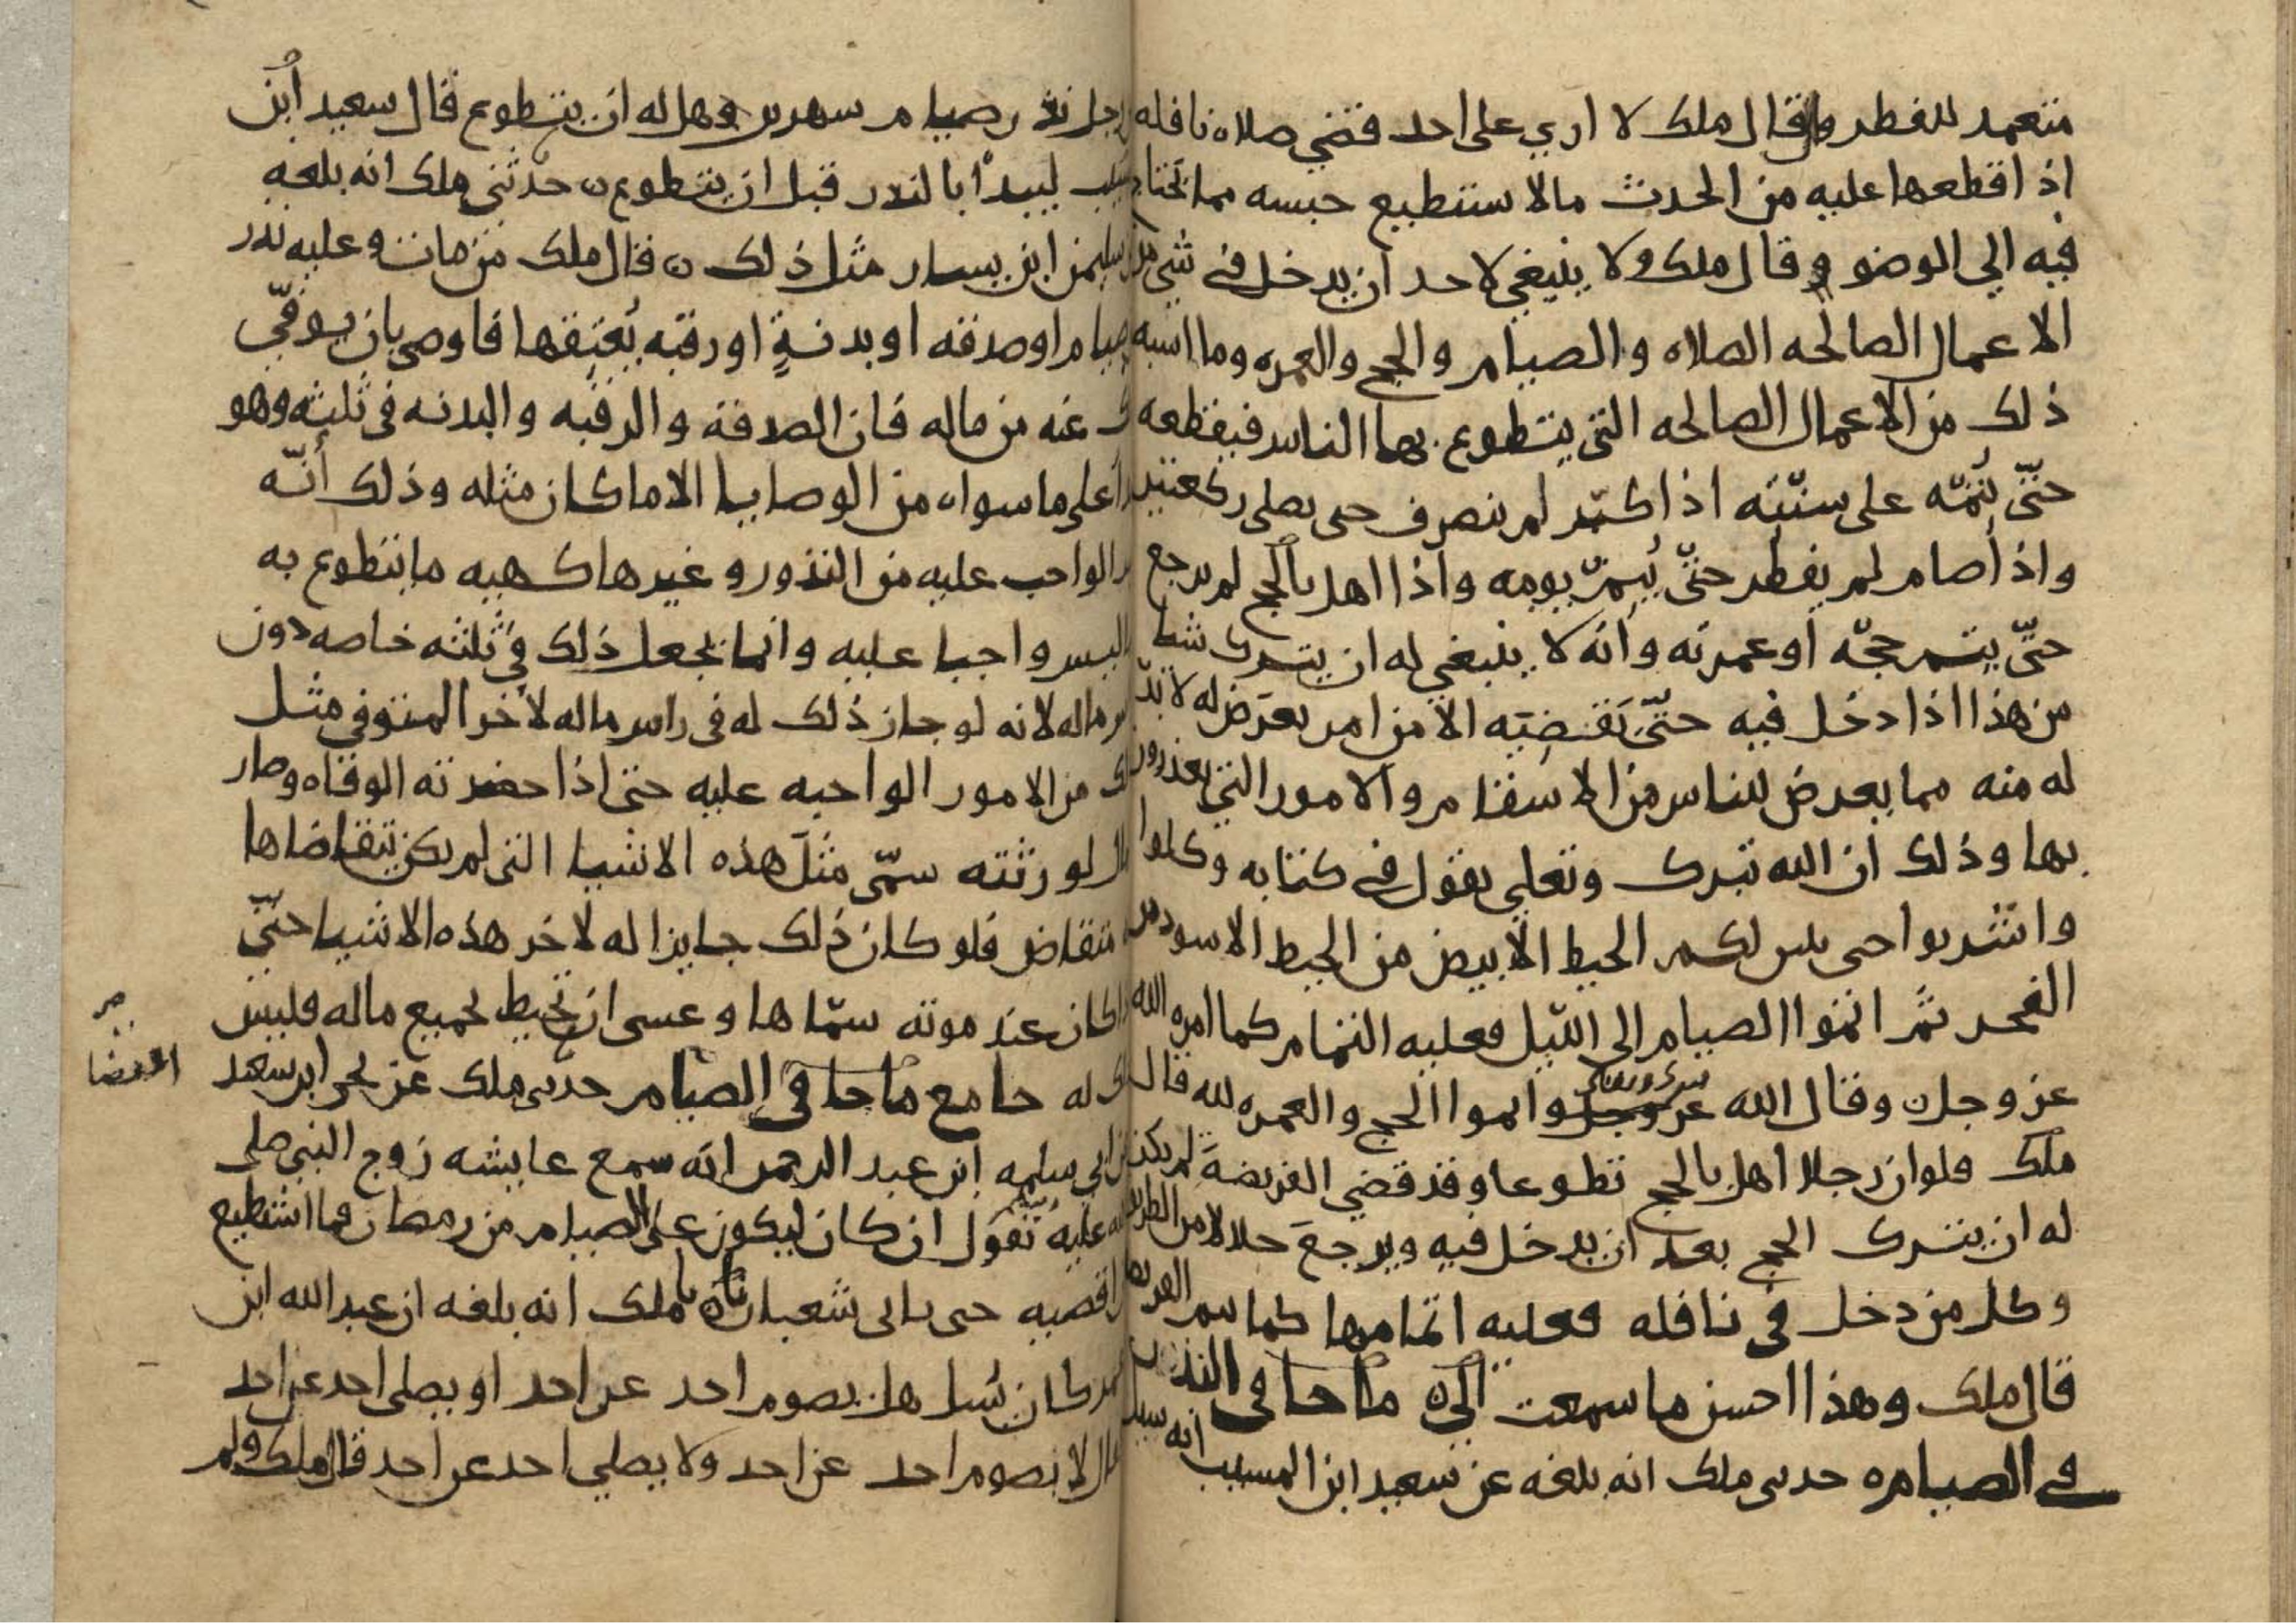 متعمد للفطر وقال ملك لا اري على احد قضي صلاه نافله
اذ اقطعها عليه من الحدث مالا ستطيع حبسه مما يحتاج
فيه الي الوضو وقال ملك ولا ينبغي لاحد ان يدخل في شي من
الاعمال الصالحه الصلاه والصيام والحج والعمره وما اشبه
ذلك من الاعمال الصالحه التي يتطوع بها الناس فيقطعه
حتّى يُتمّه على سنّته اذا كبّر لم ينصرف حى يصلى ركعتين
واذا صام لم يفطر حتّى يُتِمّ يومه واذا اهل بالحج لم يرجع
حتّى يتم حجّه او عمرته وانّه لا ينبغي له ان يترك شيا
من هذا اذا دخل فيه حتّى يَقضِيَه الا من امر يعرَض له لا بدّ
له منه مما يعرض للناس من الاسقام والامور التي يعذرون
بها وذلك ان الله تبرك وتعلى يقول في كتابه وكلوا
واشربوا حى يتبين لكم الخيط الابيض من الخيط الاسود من
الفجر ثمّ اتموا الصيام الى اللّيل فعليه التمام كما امره الله
عز وجل وقال الله عز وجل تبرك وتعلى واتموا الحج والعمره لله قال
ملك فلو ان رجلا اهل بالحج تطوعا وقد قضي الفريضةَ لم يكن
له ان يترك الحج بعد ان يدخل فيه ويرجعَ حلالا من الطريق
وكل من دخل في نافله فعليه اتمامها كما يتم الفريضه
قال ملك وهذا احسن ما سمعت الي ما جا في النذر
في الصيام حدىى ملك انه بلغه عن سعيد ابن المسيب انه سيل
رجل نذر صيام سهرىں وهل له ان يتطوع قال سعيد ابن
ليبدأ بالنذر قبل ان يتطوع حدّثني ملك انه بلغه
سليمن ابن يسار مثل ذلك قال ملك من مات وعليه نذر
صيام او صدقه او بدنةٍ او رقبه يُعتِقها فاوصى بان يوفّي
ذلك عنه من ماله فان الصدقة والرقبه والبدنه في ثلثه وهو
على ما سواه من الوصايا الا ما كان مثله وذلك أنّه
الواجب عليه من النذور وغيرها كهيه ما يتطوع به
ليس واجبا عليه وانما يجعل ذلك في ثلثه خاصه دون
راس ماله لانه لو جاز ذلك له في راس ماله لأخر المتوفي مثل
ذلك من الامور الواجبه عليه حتى اذا حضرته الوفاه وصار
المال لورثته سمّى مثلَ هذه الاشيا التي لم يكن يتقاضاها
متقاض فلو كان ذلك جايزا له لأخر هذه الاشيا حتّى
اذا كان عند موته سمّاها وعسى ان يُحيط بجميع ماله فليس
ذلك له جامع ما جا في الصيام حدىى ملك عن يحى ابن سعيد
عن ابي سلمه ابن عبد الرحمن انّه سمع عايشه زوج النبي صلى
الله عليه تقول ان كان ليكون على الصيام من رمضان فما استطيع
ان اقضيه حى ياتي شعبان ملك انه بلغه ان عبد الله ابن
عمر كان يُسل هل يصوم احد عن احد او يصلى احد عن احد
قال لا يصوم احد عن احد ولا يصلي احد عن احد قال ملك ولم